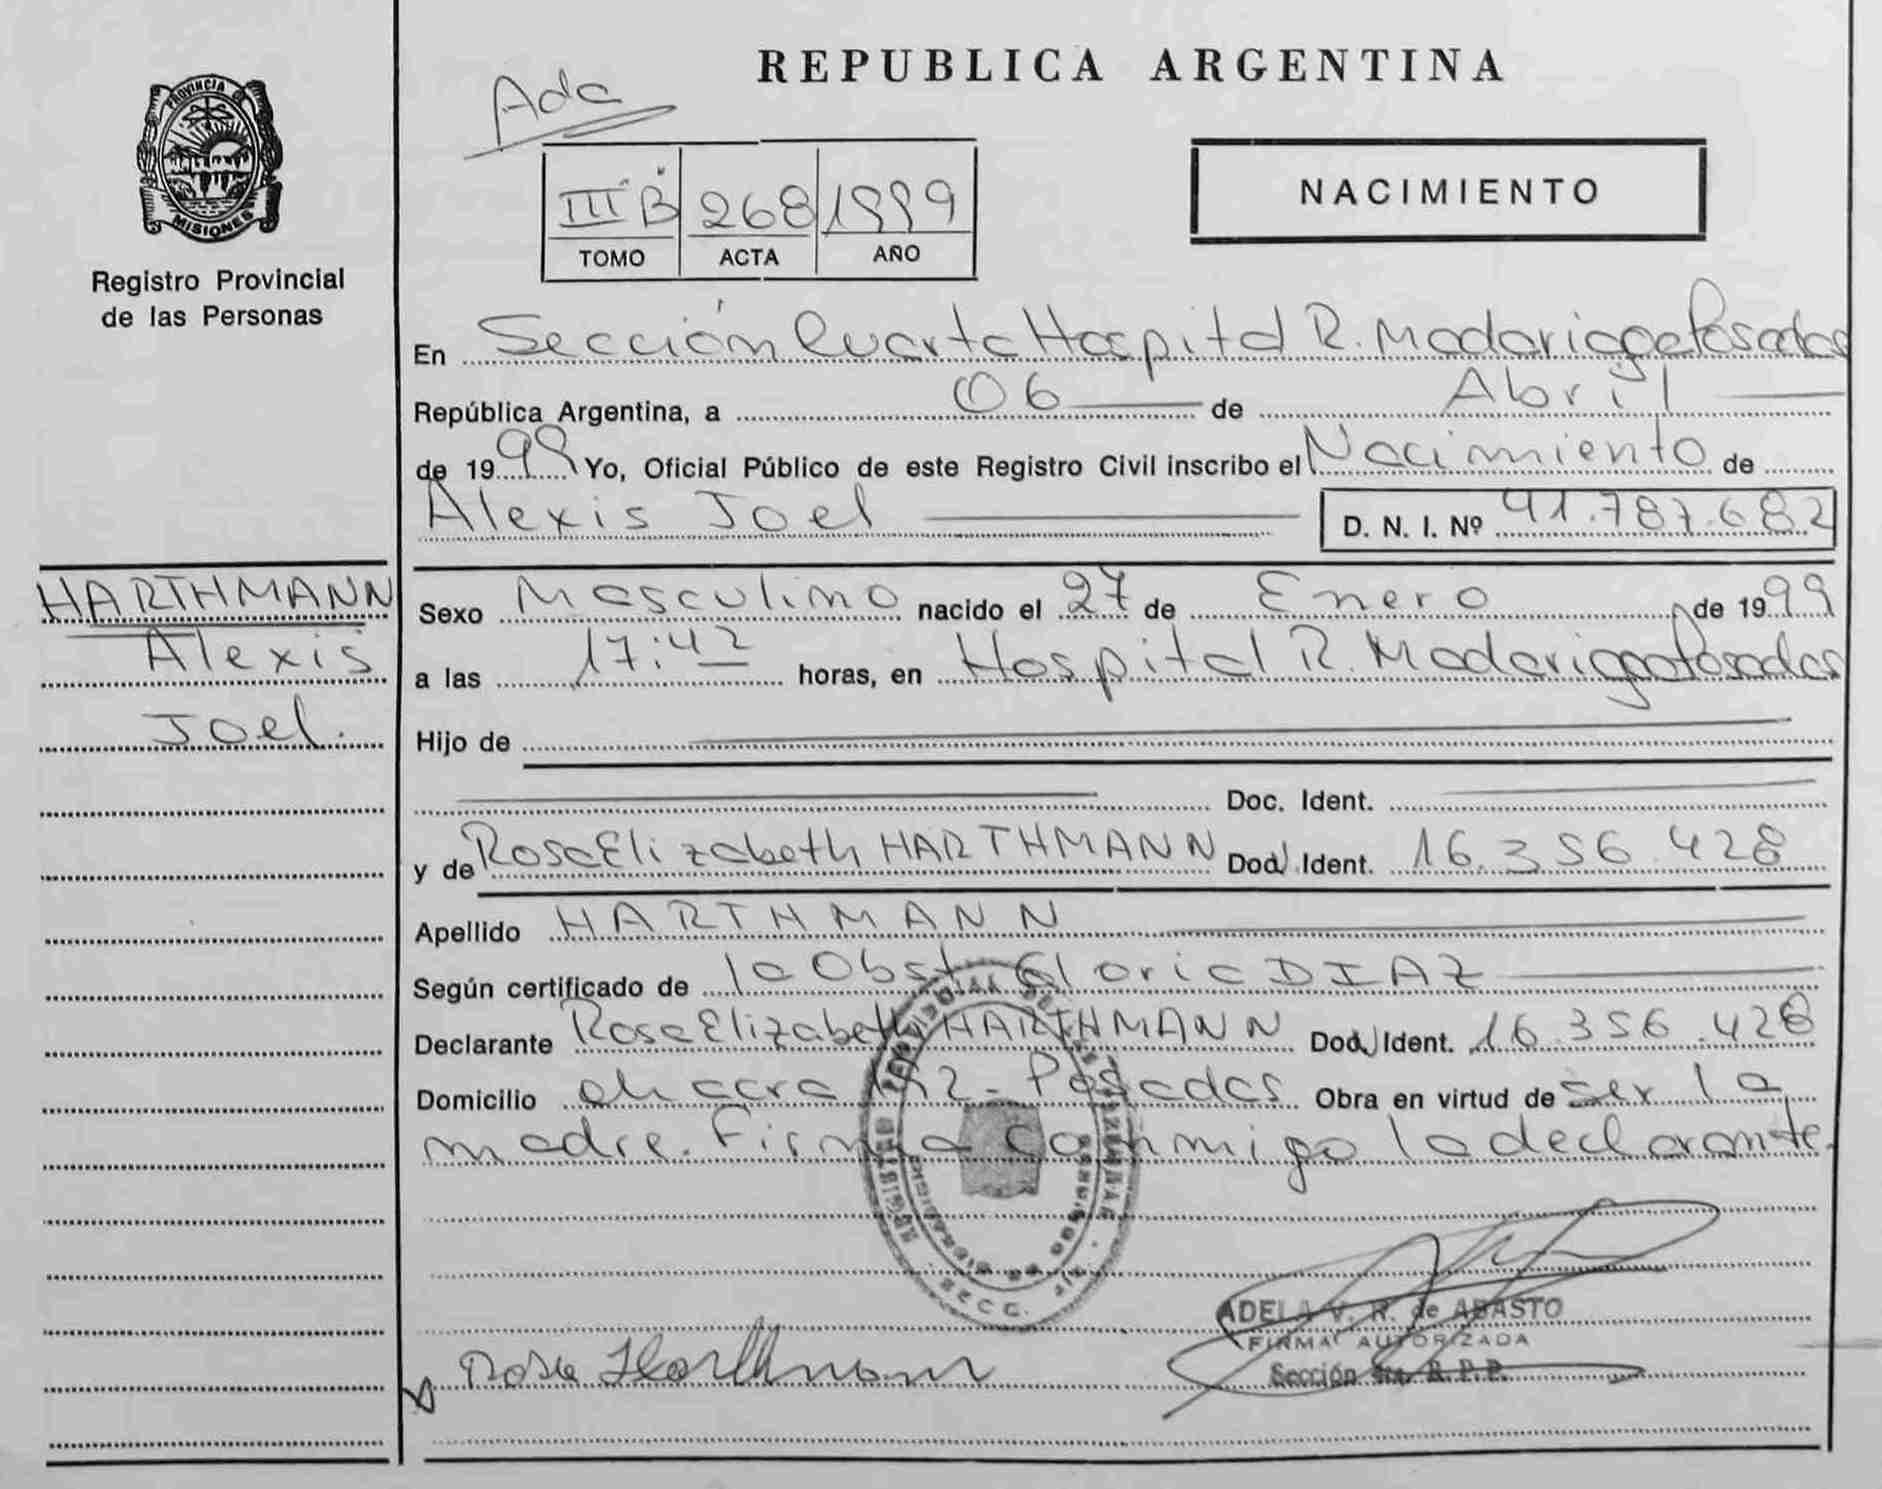 REPUBLICA ARGENTINA
Ada
PROVINCIA DE
MISIONES
Registro Provincial
de las Personas
III "B" 268 1999
TOMO ACTA AÑO
NACIMIENTO
En Sección Cuarta Hospital R. Madariaga Posadas
República Argentina, a 06 de Abril
de 1999 Yo, Oficial Público de este Registro Civil inscribo el Nacimiento de
Alexis Joel D. N. I. Nº 41.787.682
HARTHMANN
Alexis
Joel.
Sexo Masculino nacido el 27 de Enero de 1999
a las 17:42 horas, en Hospital R. Madariaga Posadas
Hijo de
Doc. Ident.
y de Rosa Elizabeth HARTHMANN Doc. Ident. 16.356.428
Apellido HARTHMANN
Según certificado de la Obst. Gloria DIAZ
Declarante Rosa Elizabeth HARTHMANN Doc. Ident. 16.356.428
Domicilio chacra 192 - Posadas Obra en virtud de ser la
madre. Firma conmigo la declarante.
ADELA V. R. de ABASTO
FIRMA AUTORIZADA
Rosa Harthmann
Sección 4ta. R. P. P.